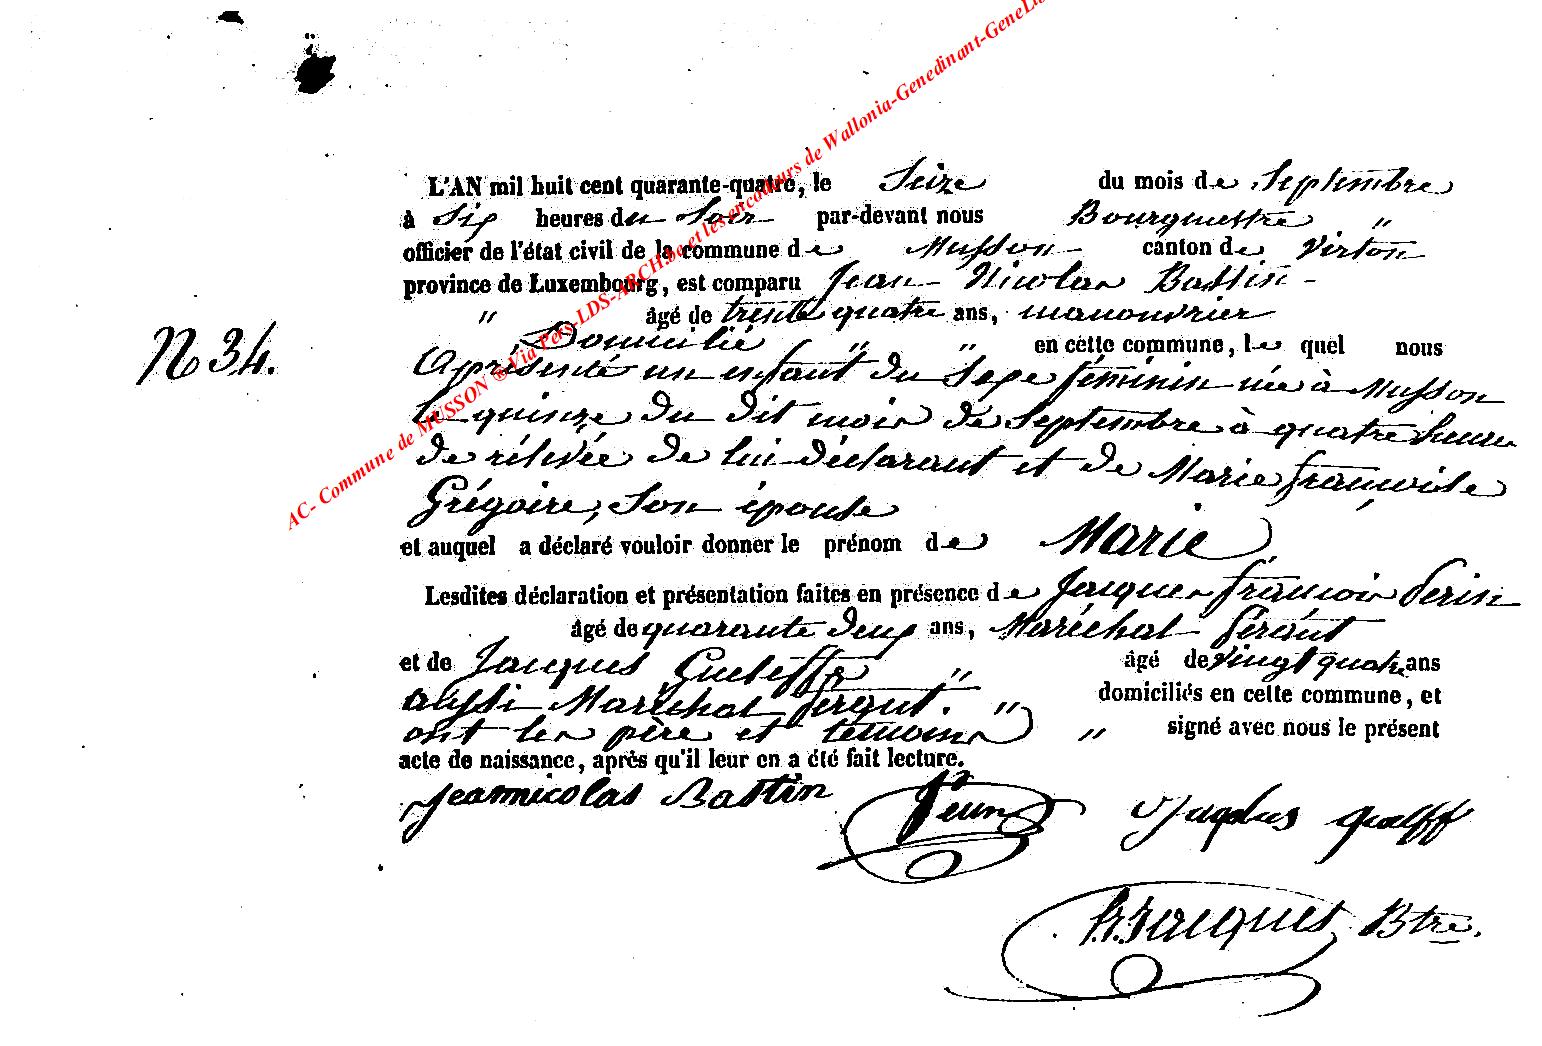 AC- Commune de MUSSON ® Via Pers-LDS-ARCH.be et les encodeurs de Wallonia-Genedinant-GeneLu
L'AN mil huit cent quarante-quatre, le Seize du mois de Septembre
à Six heures du Soir par-devant nous Bourgmestre "
officier de l'état civil de la commune de Musson canton de Virton
province de Luxembourg, est comparu Jean Nicolas Bastin -
" âgé de trente quatre ans, manouvrier
N 34.
Domicilié " " en cette commune, lequel nous
a présenté un enfant du Sexe féminin née à Musson
le quinze du dit mois de Septembre à quatre heures
de rélevée de lui déclarant et de Marie françoise
Grégoire, Son épouse
et auquel a déclaré vouloir donner le prénom de Marie
Lesdites déclaration et présentation faites en présence de Jacques françois Perin
âgé de quarante deux ans, Maréchal ferant
et de Jacques Gueleff " âgé de vingt quatre ans
aussi Maréchal ferant. " domiciliés en cette commune, et
ont les père et témoins " signé avec nous le présent
acte de naissance, après qu'il leur en a été fait lecture.
Jeannicolas Bastin Jacques
Jacques Btre.